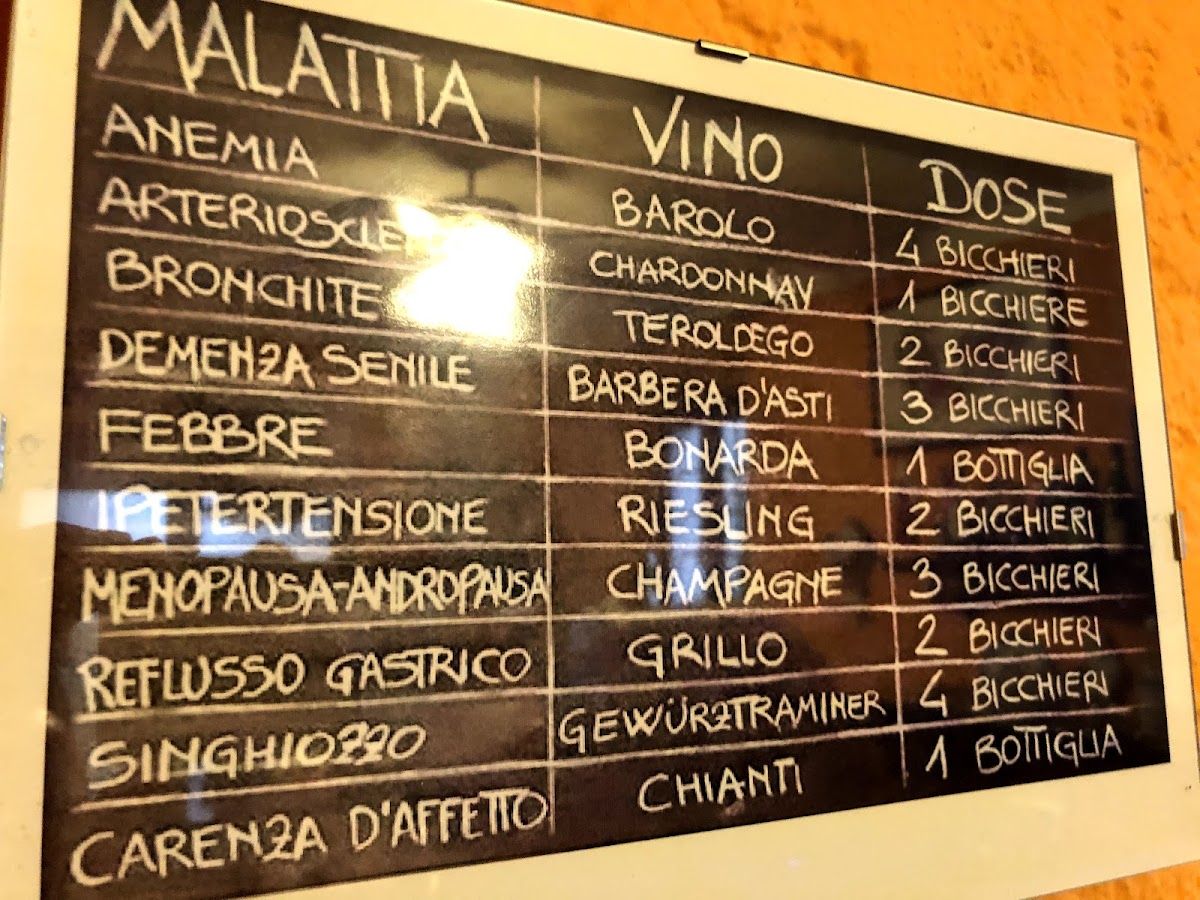 MALATTIA VINO DOSE
ANEMIA BAROLO 4 BICCHIERI
CHARDONNAY 1 BICCHIERE
BRONCHITE TEROLDEGO 2 BICCHIERI
DEMENZA SENILE BARBERA D'ASTI 3 BICCHIERI
FEBBRE BONARDA 1 BOTTIGLIA
IPETERTENSIONE RIESLING 2 BICCHIERI
MENOPAUSA-ANDROPAUSA CHAMPAGNE 3 BICCHIERI
REFLUSSO GASTRICO GRILLO 2 BICCHIERI
SINGHIOZZO GEWÜRZTRAMINER 4 BICCHIERI
CARENZA D'AFFETTO CHIANTI 1 BOTTIGLIA